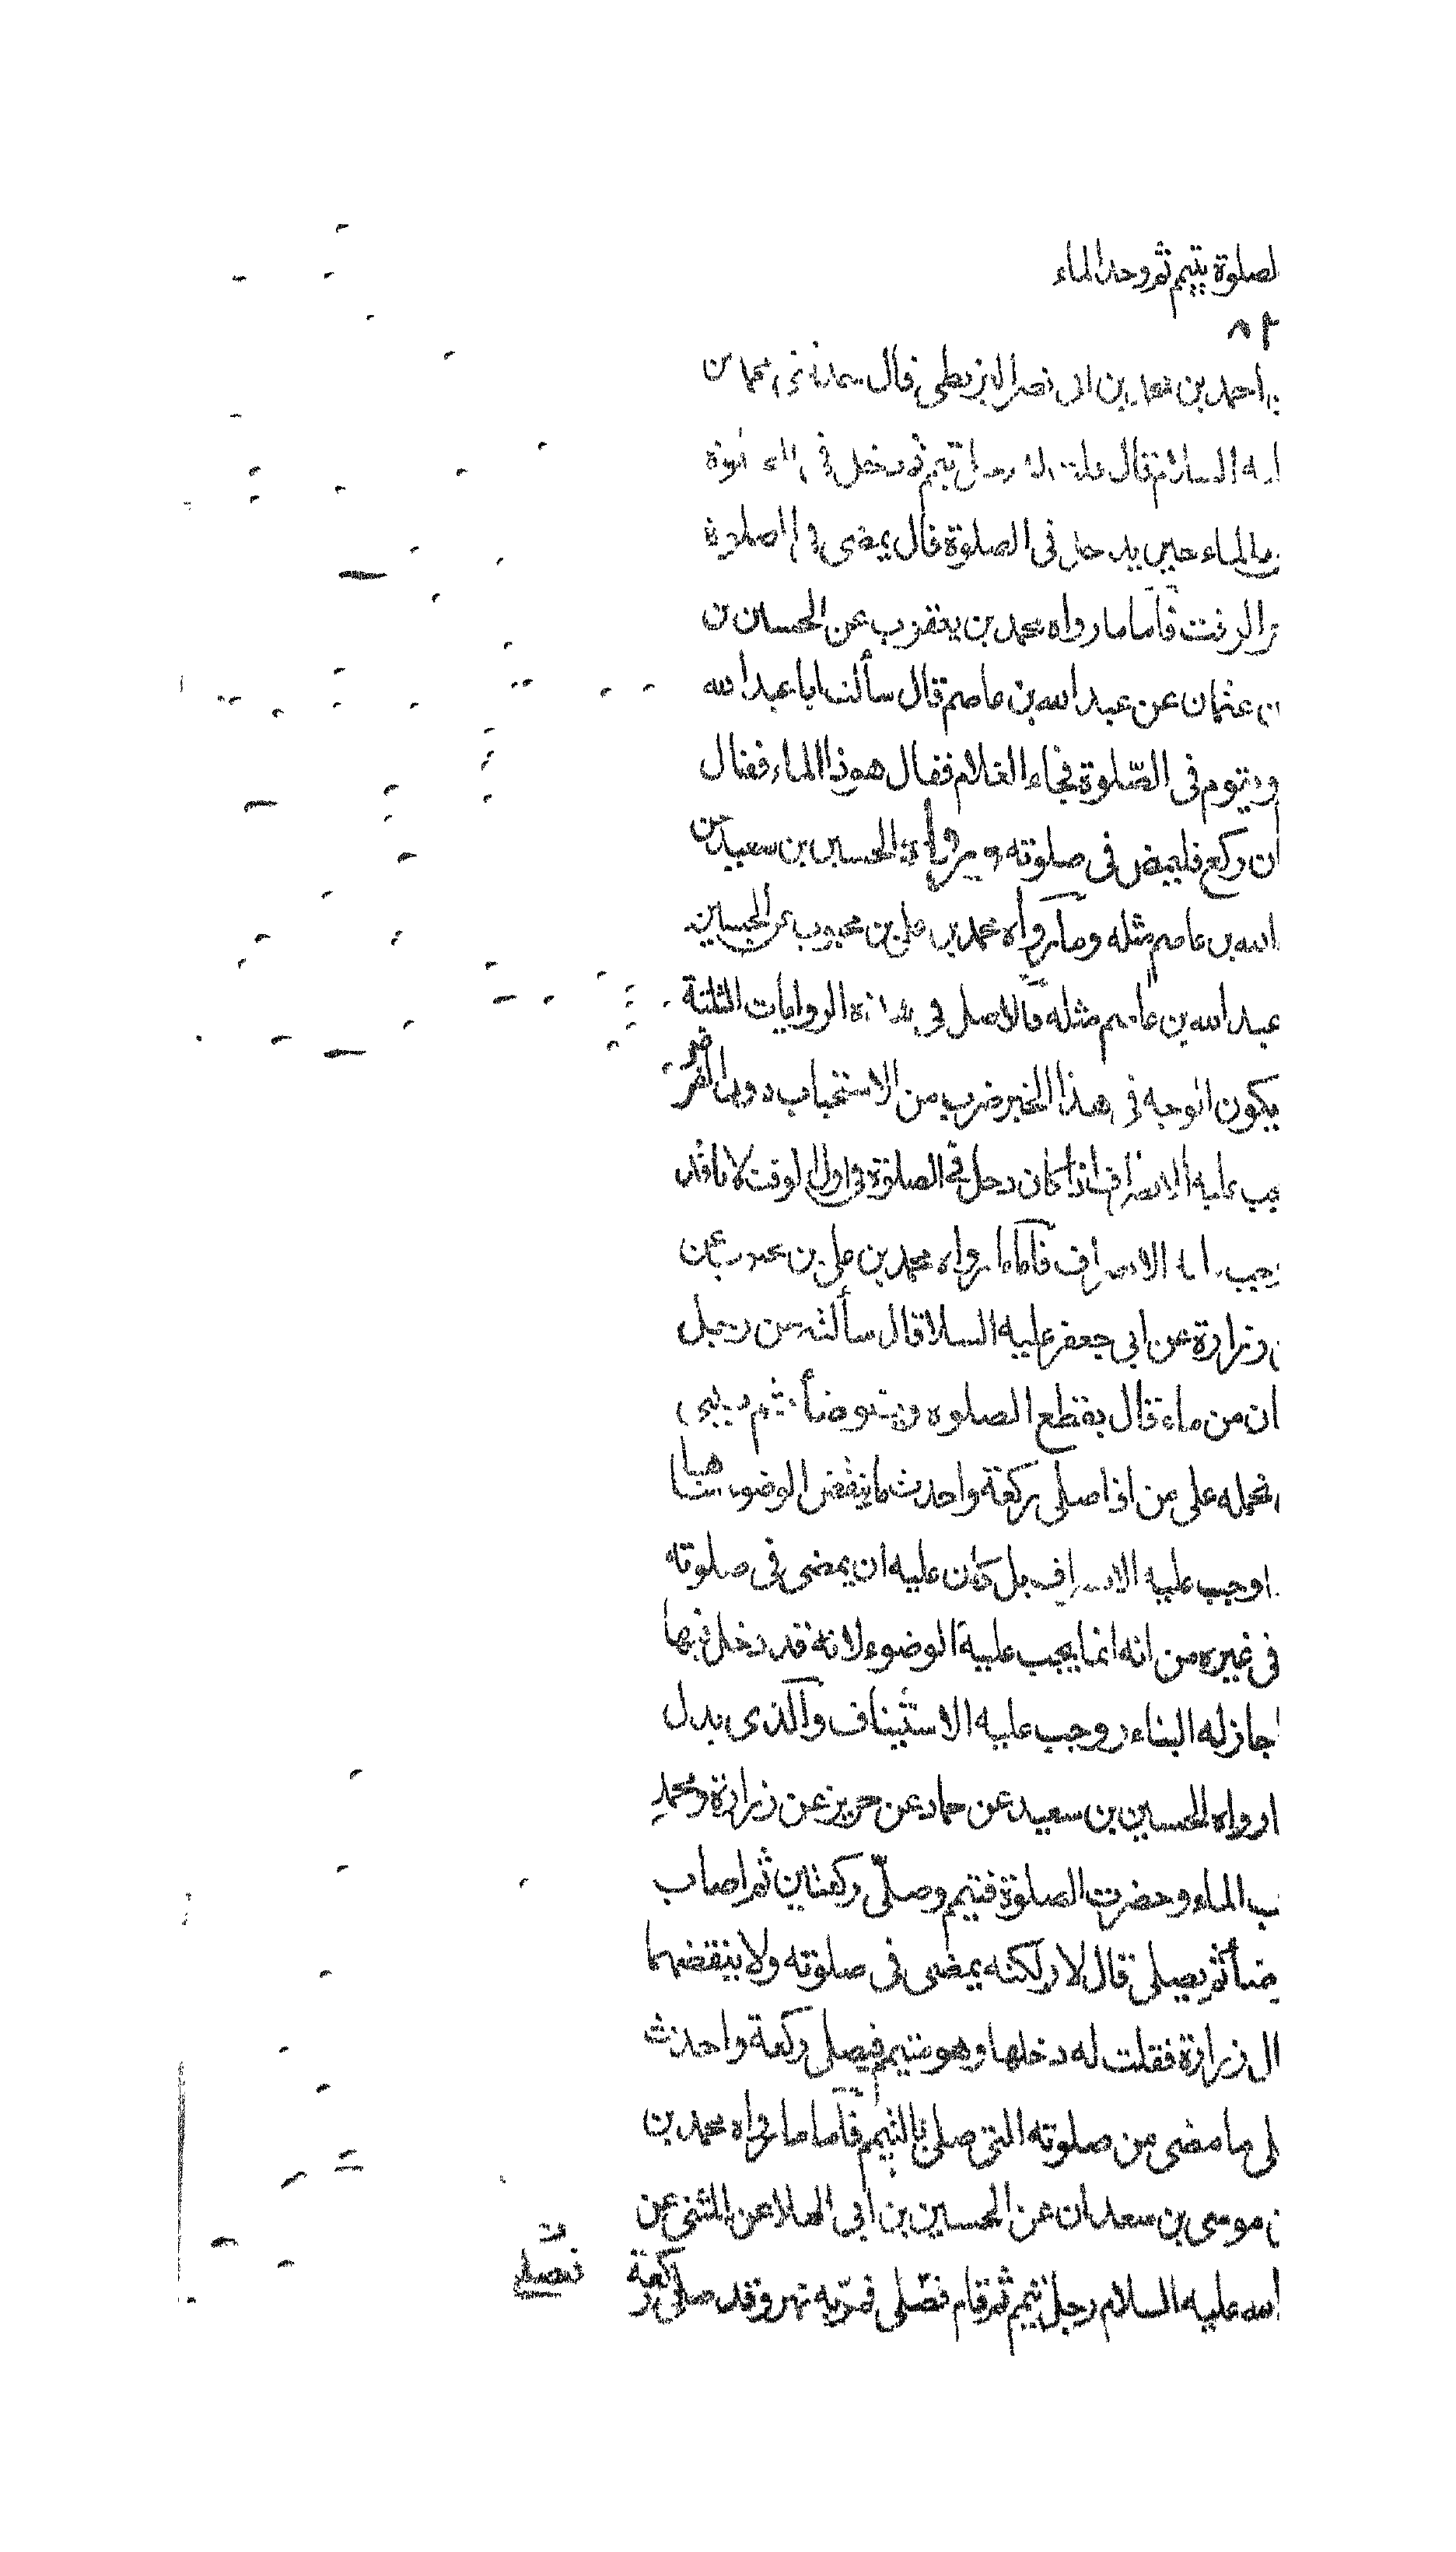 لصلوة يتيم ثم وجد الماء
٨٢
احمد بن محمد بن ابى نصر البزنطى قال حدثنى محمد بن
السلام قال قلت له رجل تيمم ثم دخل فى الصلوة
الماء حين يدخل فى الصلوة قال يمضى فى الصلوة
الوقت فاما ما رواه محمد بن يعقوب عن الحسين بن
بن عثمان عن عبد الله بن عاصم قال سألت ابا عبد الله
ويقوم فى الصّلوة فجاء الغلام فقال هوذا الماء فقال
ان ركع فليمض فى صلوته وروى الحسين بن سعيد عن
الله بن عاصم مثله وما رواه محمد بن على بن محبوب عن الحسين
عبد الله بن عاصم مثله فالاصل فى هذه الروايات الثلثة
يكون الوجه فى هذا الخبر ضرب من الاستحباب دون الفرض
يجب عليه الانصراف اذا كان دخل فى الصلوة فى اول الوقت لانا قد
يجب عليه الانصراف فاما ما رواه محمد بن على بن محبوب عن
زرارة عن ابى جعفر عليه السلا قال سألته عن رجل
ان من ماء قال يقطع الصلوه ويتوضأ ثم يبنى
نحمله على من اذا صلى ركعة واحدث ما ينقض الوضوء ساهيا
وجب عليه الانصراف بل كان عليه ان يمضى فى صلوته
فى غيره من انه انما يجب عليه الوضوء لانه قد دخل فيها
جاز له البناء ووجب عليه الاستيناف والذى يدل
ارواه الحسين بن سعيد عن حماد عن حريز عن زرارة ومحمد
ب الماء وحضرت الصلوة فتيمم وصلّى ركعتين ثم اصاب
ضأ ثم يصلى قال لا ولكنه يمضى فى صلوته ولا ينقضهما
ال زرارة فقلت له دخلها وهو متيمم فيصلى ركعة واحدث
لى ما مضى من صلوته التى صلى بالتيمم فاما ما رواه محمد بن
ن موسى بن سعدان عن الحسين بن ابى العلا عن المثنى عن
الله عليه السلام رجل تيمم ثم قام فصّلى فمرّ به نهر وقد صلى ركعة
فتصلى